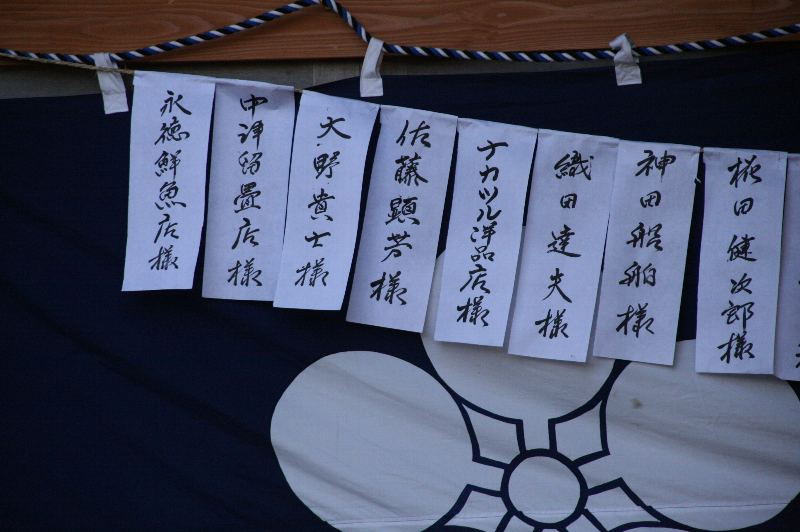 永徳鮮魚店様
中津留畳店様
大野貴士様
佐藤顕芳様
ナカツル洋品店様
織田達夫様
神田船舶様
椛田健次郎様